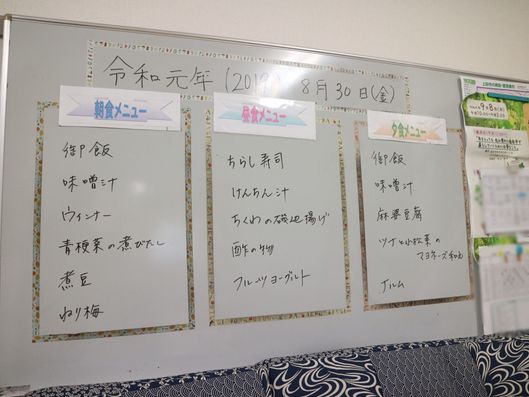 令和元年(2019) 8月30日(金)
朝食メニュー
御飯
味噌汁
ウィンナー
青梗菜の煮びたし
煮豆
ねり梅
昼食メニュー
ちらし寿司
けんちん汁
ちくわの磯辺揚げ
酢の物
フルーツヨーグルト
夕食メニュー
御飯
味噌汁
麻婆豆腐
ツナと小松菜の
マヨネーズ和え
ナムル
9月8日